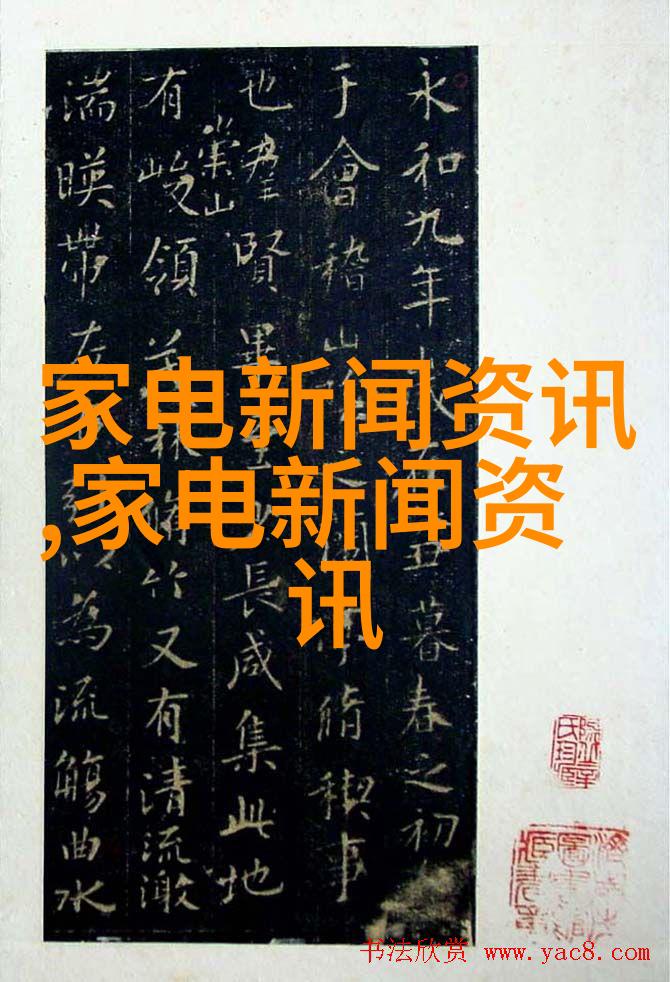 永和九年丑暮春之初
于會稽山之脩稧事
也羣賢畢長咸集此地
有崇山峻領茂林脩竹又有清流激
湍暎帶左為流觴曲水
家电新闻资讯
,家电新闻资
讯
书法欣赏 www.yac8.com